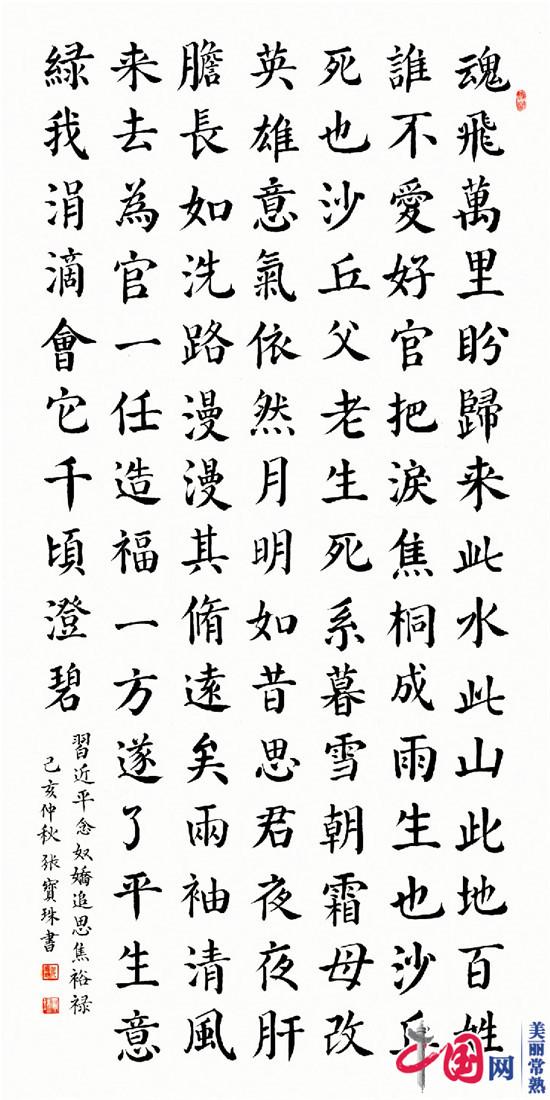 魂飛萬里盼歸来此水此山此地百姓
誰不愛好官把淚焦桐成雨生也沙丘
死也沙丘父老生死系暮雪朝霜毋改
英雄意氣依然月明如昔思君夜夜肝
膽長如洗路漫漫其脩遠矣兩袖清風
来去為官一任造福一方遂了平生意
綠我涓滴會它千頃澄碧
習近平念奴嬌追思焦裕禄
己亥仲秋張寶珠書
中国网
美丽常熟